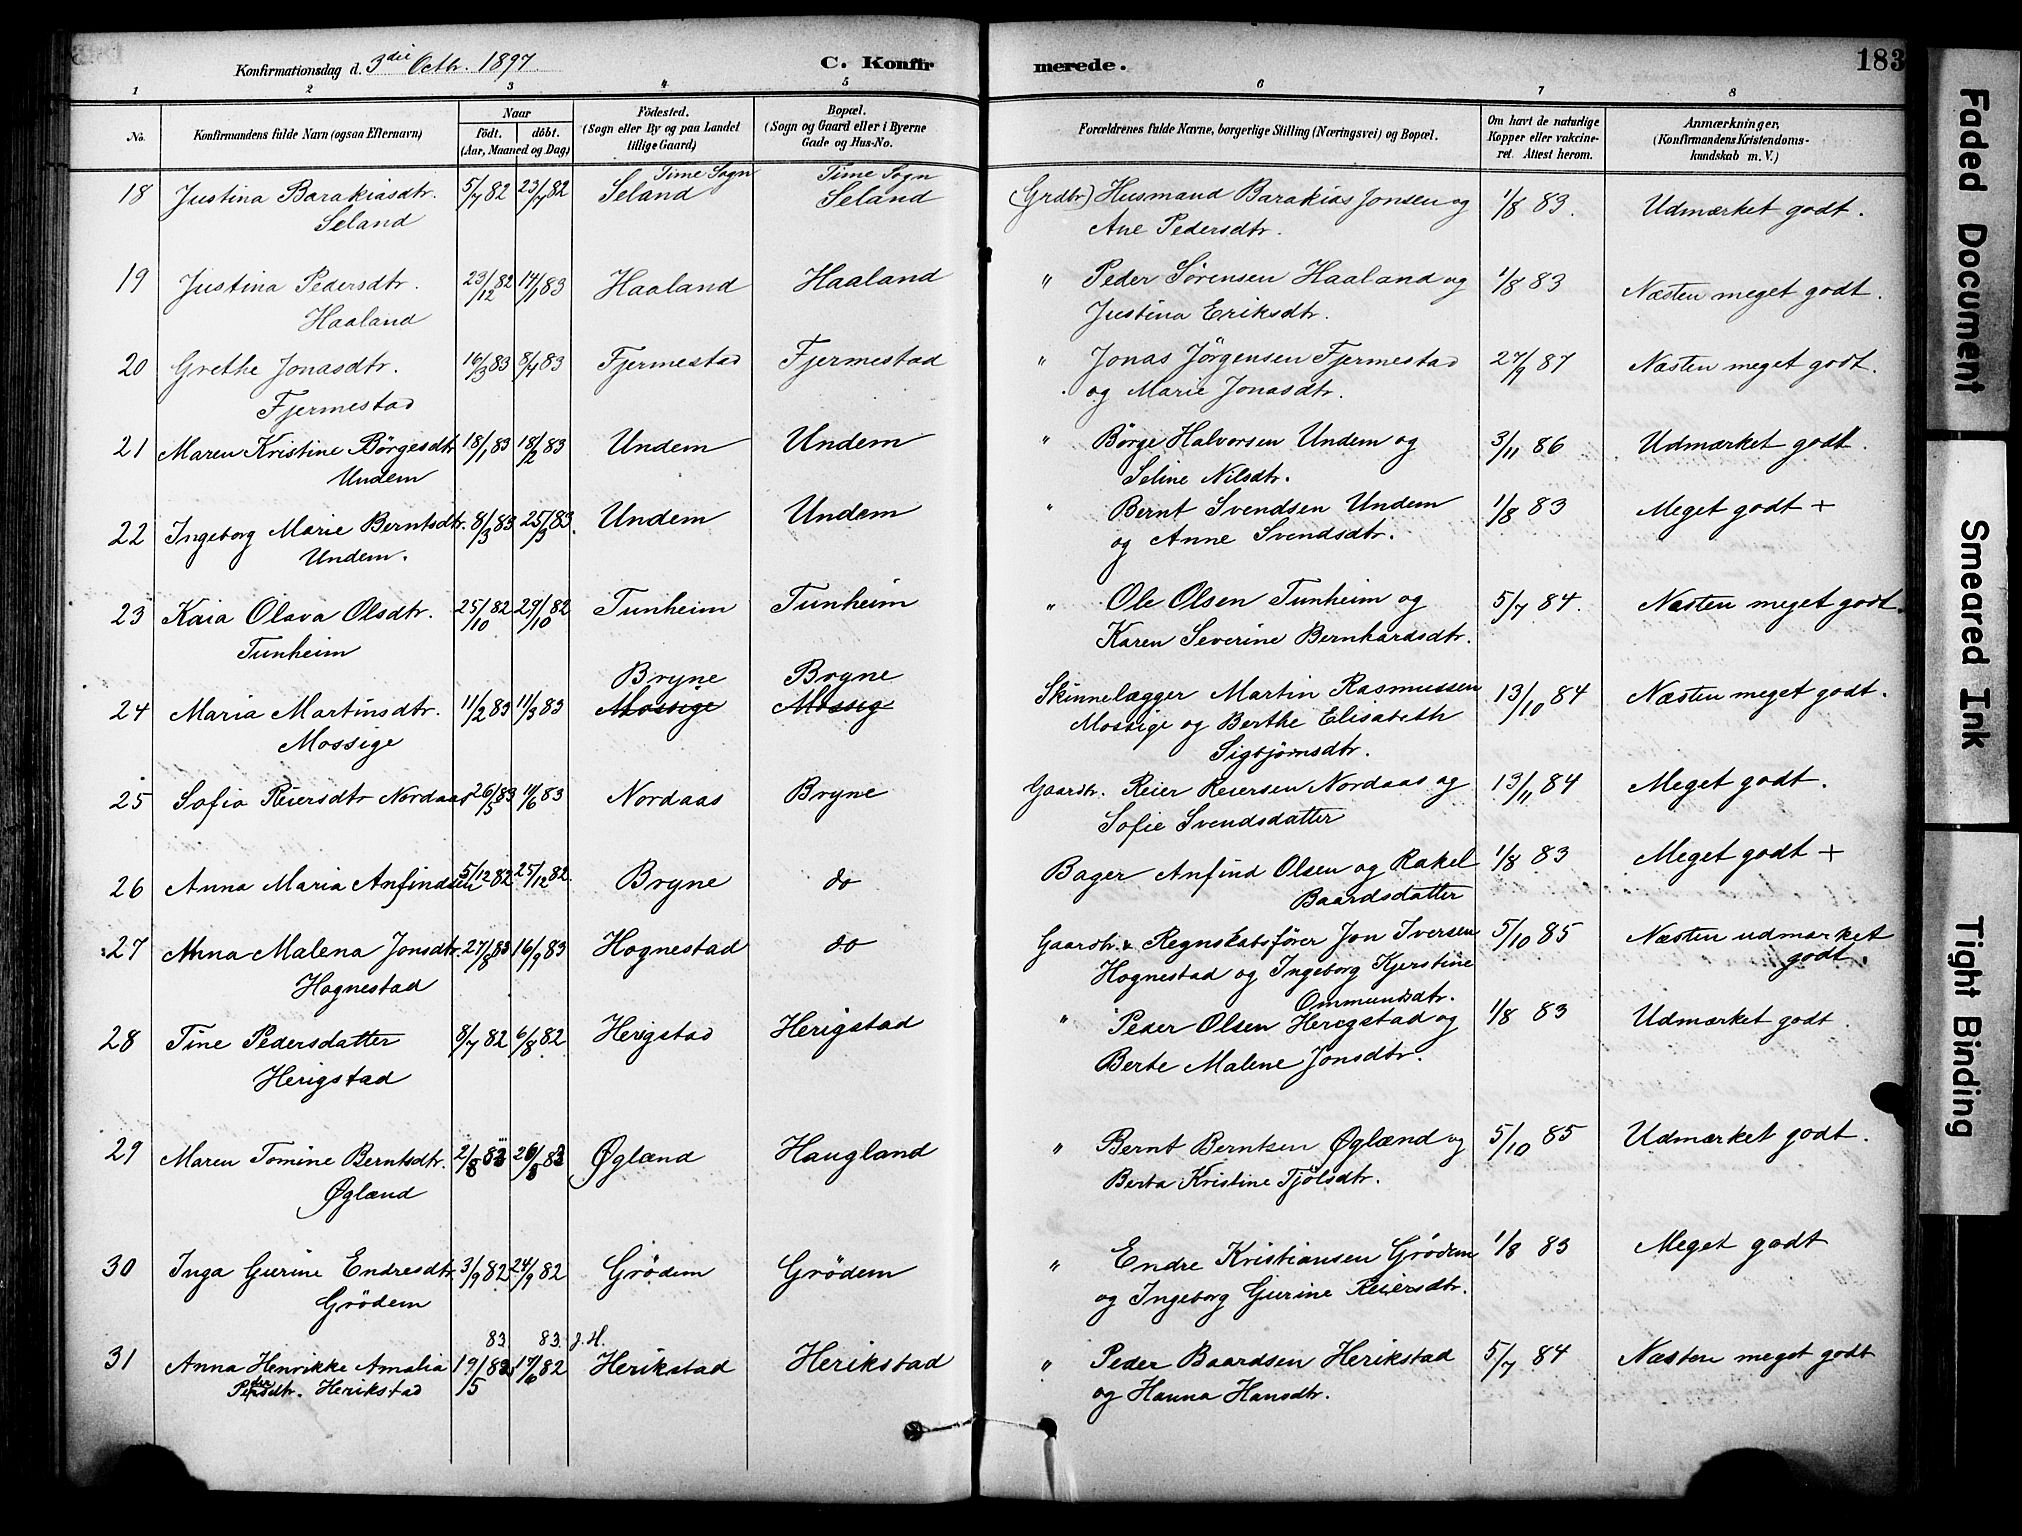 Konfirmationsdag d. 3die Octbr. 1897.
C. Konfirmerede.
183
1 2 3 4 5 6 7 8
No.
Konfirmandens fulde Navn (ogsaa Efternavn)
Naar
födt. döbt.
(Aar, Maaned og Dag)
Födested.
(Sogn eller By og paa Landet tillige Gaard)
Bopæl.
(Sogn og Gaard eller i Byerne Gade og Hus-No.
Forældrenes fulde Navne, borgerlige Stilling (Næringsvei) og Bopæl.
Om havt de naturlige Kopper eller vakcineret. Attest herom.
Anmærkninger,
(Konfirmandens Kristendomskundskab m. V.)
18 Justina Barakiasdtr. 5/7 82 23/7 82 Time Sogn Seland Time Sogn Seland (Grdbr) Husmand Barakias Jonsen og 1/8 83. Udmærket godt.
Seland Ane Pedersdtr.
19 Justina Pedersdtr. 23/12 82 14/1 83 Haaland Haaland " Peder Sörensen Haaland og 1/8 83 Næsten meget godt.
Haaland Justina Eriksdtr.
20 Grethe Jonasdtr. 16/3 83 8/4 83 Fjermestad Fjermestad " Jonas Jörgensen Fjermestad 27/9 87 Næsten meget godt.
Fjermestad og Marie Jonasdtr.
21 Maren Kristine Börgesdtr 18/1 83 18/2 83 Undem Undem " Börge Halvorsen Undem og 3/11 86 Udmærket godt.
Undem Seline Nilsdtr.
22 Ingeborg Marie Berntsdtr. 8/3 83 25/3 83. Undem Undem " Bernt Svendsen Undem 1/8 83 Meget godt +
Undem. og Anne Svendsdtr.
23 Kaia Olava Olsdtr. 25/10 82 29/10 82 Tunheim Tunheim " Ole Olsen Tunheim og 5/7 84. Næsten meget godt
Tunheim Karen Severine Bernhardsdtr.
Bryne Bryne
24 Maria Martinsdtr. 11/2 83 11/3 83 Mossige Mossig Skinnelægger Martin Rasmussen 13/10 84 Næsten meget godt.
Mossige Mossige og Berthe Elisabeth
Sigbjörnsdtr.
25 Sofia Reiersdtr Nordaas 26/5 83 11/6 83 Nordaas Bryne Gaardbr. Reier Reiersen Nordaas og 13/11 84 Meget godt.
Sofie Svendsdatter
26 Anna Maria Anfindsen 5/12 82 25/12 82. Bryne do Bager Anfind Olsen og Rakel 1/8 83 Meget godt +
Baardsdatter
27 Anna Malena Jonsdtr. 27/8 83 16/9 83 Hognestad do Gaardbr. & Regnskabsförer Jon Iversen 5/10 85 Næsten udmærket
Hognestad Hognestad og Ingeborg Kjerstine godt.
Ommundsdtr.
28 Tine Pedersdatter 8/7 82 6/8 82 Herigstad Herigstad " Peder Olsen Heregstad og 1/8 83 Udmærket godt.
Herigstad Berte Malene Jonsdtr.
29 Maren Tomine Berntsdtr. 2/8 83 26/8 83 Øglænd Haugland " Bernt Berntsen Øglænd og 5/10 85 Udmærket godt.
Øglænd Berta Kristine Tjölsdtr.
30 Inga Gurine Endresdtr. 3/9 82 24/9 82 Grödem Grödem " Endre Kristiansen Grödem 1/8 83 Meget godt
Grödem og Ingeborg Gurine Reiersdtr.
83 83 J. H.
31 Anna Henrikke Amalia 19/5 82 17/6 82 Herikstad Herikstad " Peder Baardsen Herikstad 5/7 84 Næsten meget godt
Herikstad og Hanna Hansdtr.
Faded Document
Smeared Ink
Tight Binding